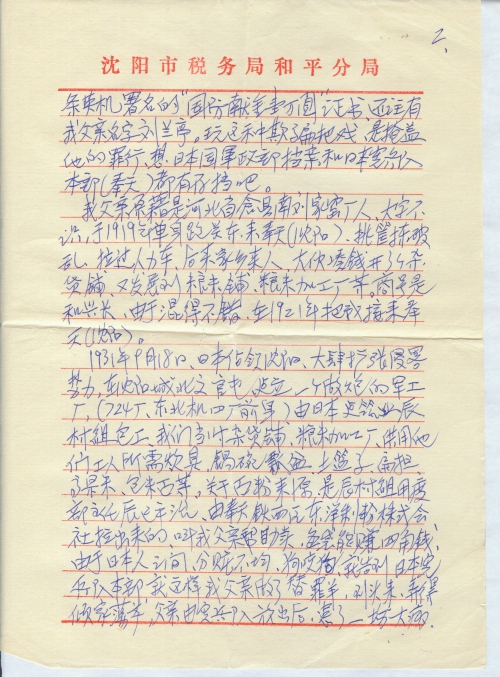 2.
沈阳市税务局和平分局
条英机署名的"国防献金壹万圆"证书，还注有
我父亲名字刘兰亭。玩这示中欺骗把戏，是掩盖
他的罪行，想日本国军政部档案和日本宪兵队
本部（奉天）都有存档吧。
我父亲原籍是河北省县南刘家窑厂人，大字不
识，于1919年只身跑关东，来奉天（沈阳），挑筐拣破
乱，拉过人力车，后来家乡来人，大伙凑钱开了个杂
货铺，又发展到粮米铺，粮米加工厂等。商号是
和兴长，由于混得不错，在1921年把我接来奉
天（沈阳）。
1931年9月18日，日本占领沈阳，大肆扩张侵略
势力，在沈阳城北文官屯建立一个做炮的军工
厂，（724厂、东北机四厂前身）由日本 辰
村组包工，我们当时杂货铺、粮米加工厂，供用他
们工人所需炊具，锅碗瓢盆、土篮子、扁担、
高粮米、包米面等。关于面粉来源，是辰村组用度
部主任辰巳平说，由奉天铁西区东洋制粉株式会
社拉出来的，叫我父亲起助卖，每袋能赚四角钱，
由于日本人之间，分赃不均，狗咬狗，我告到日本宪
兵队本部，就这样我父亲做了替罪羊，到头来，弄得
倾家荡产，父亲由宪兵队放出后，患了一场大病，